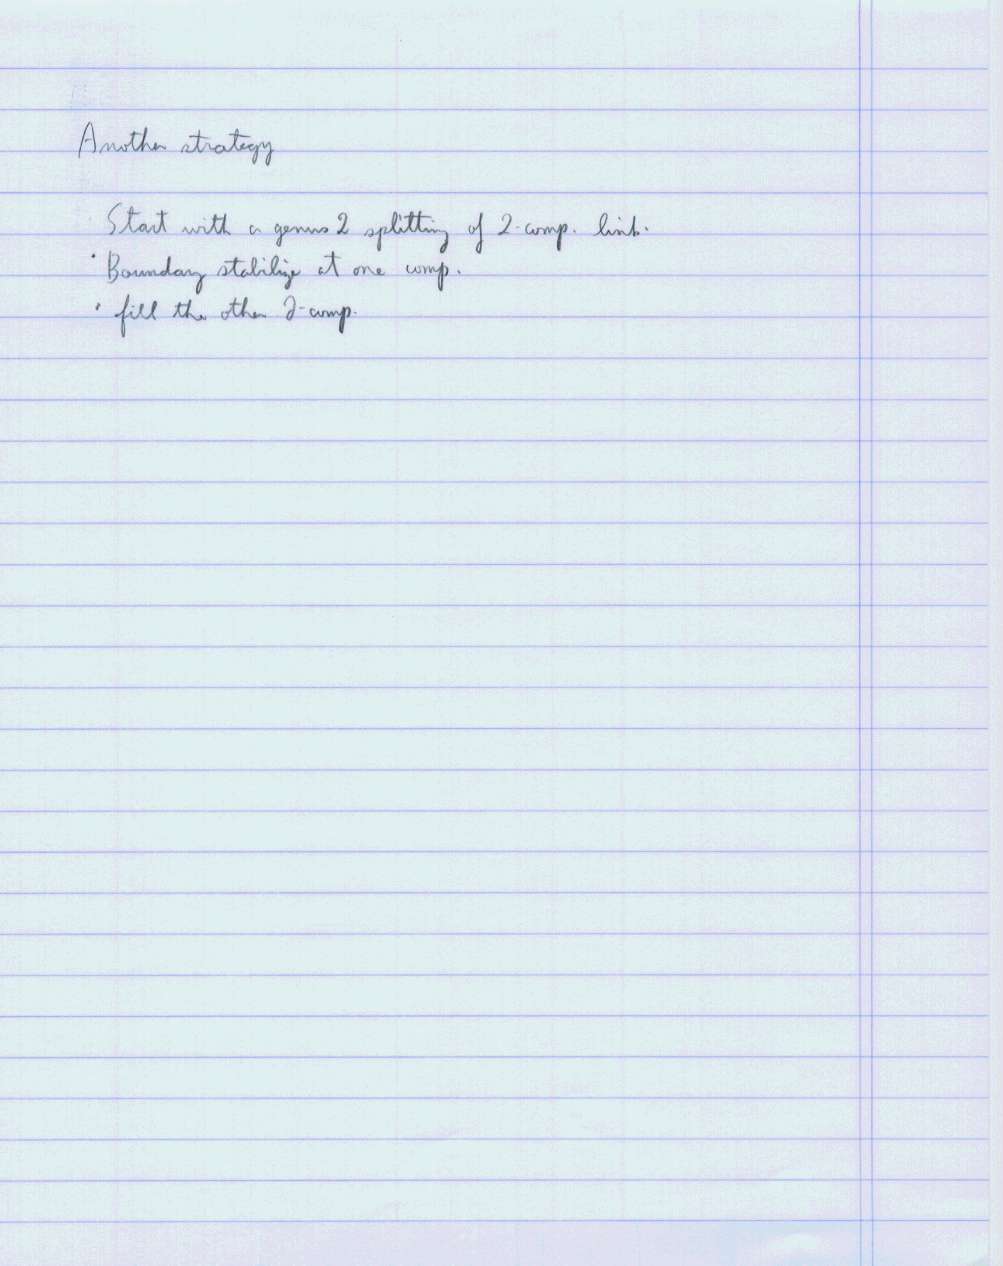 Another strategy
Start with a genus 2 splitting of 2-comp. link.
· Boundary stabilize at one comp.
· fill the other ∂-comp.